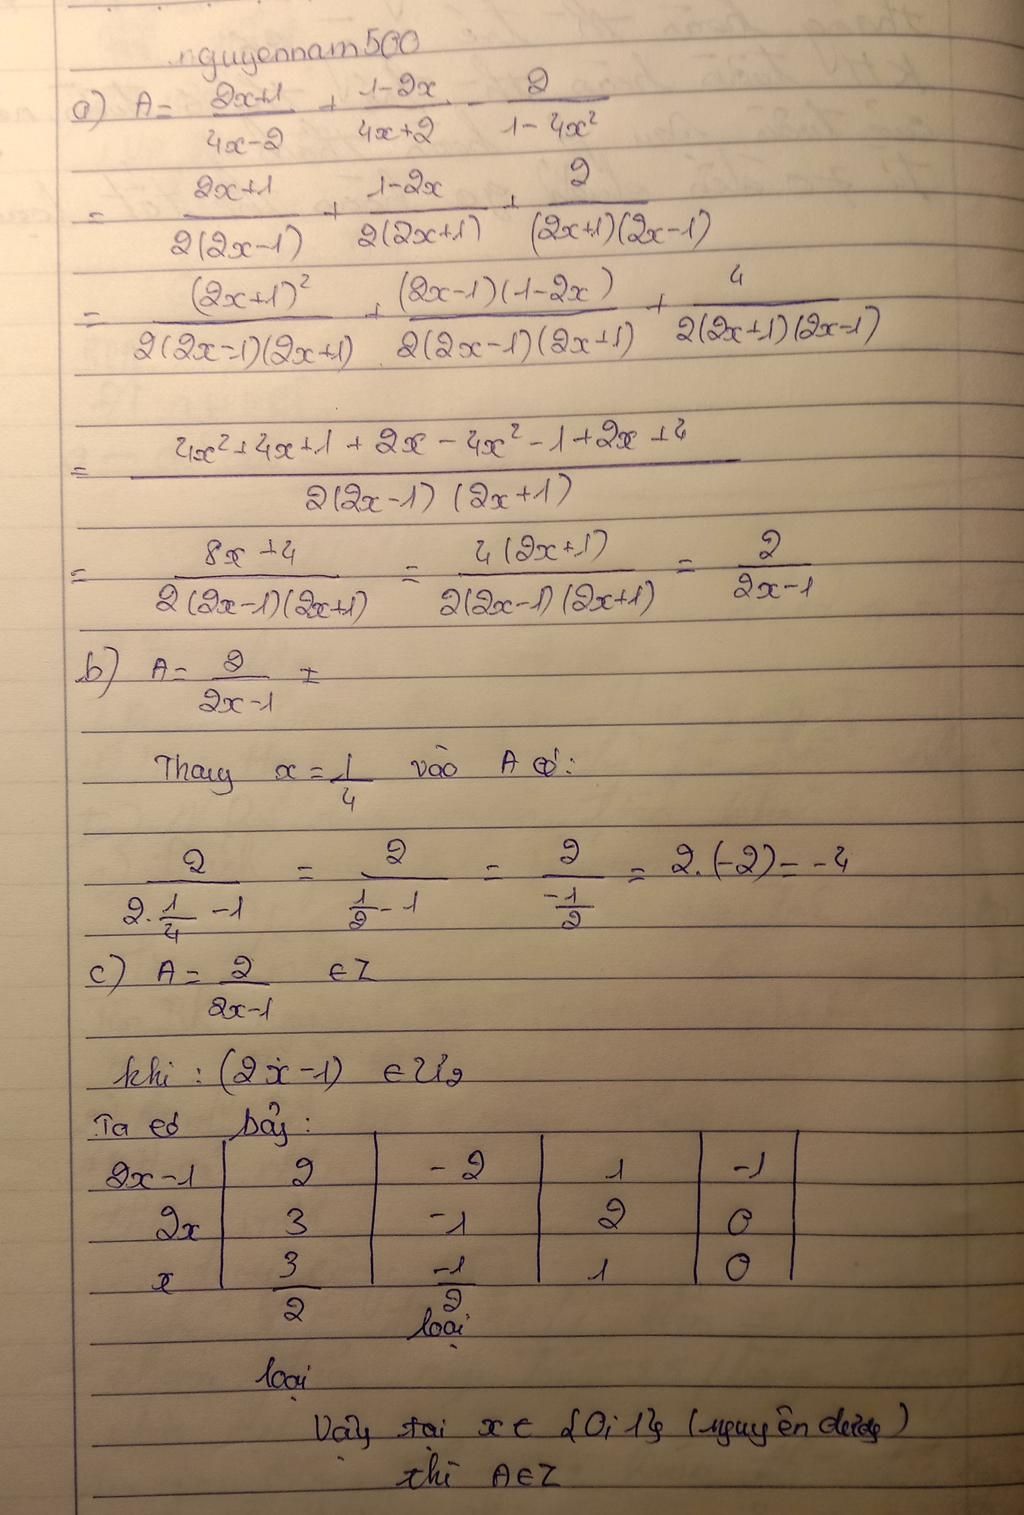 nguyennam500
a) A = (2x+1)/(4x-2) + (1-2x)/(4x+2) - 2/(1-4x²)
= (2x+1)/(2(2x-1)) + (1-2x)/(2(2x+1)) + 2/((2x+1)(2x-1))
= (2x+1)²/(2(2x-1)(2x+1)) + (2x-1)(1-2x)/(2(2x-1)(2x+1)) + 4/(2(2x+1)(2x-1))
= (4x²+4x+1+2x-4x²-1+2x+4)/(2(2x-1)(2x+1))
= (8x+4)/(2(2x-1)(2x+1)) = 4(2x+1)/(2(2x-1)(2x+1)) = 2/(2x-1)
b) A = 2/(2x-1)
Thay x = 1/4 vào A có:
2/(2.1/4 -1) = 2/(1/2 -1) = 2/(-1/2) = 2.(-2) = -4
c) A = 2/(2x-1) ∈ Z
khi : (2x-1) ∈ Ư2
Ta có bảg :
2x-1 2 -2 1 -1
2x 3 -1 2 0
x 3/2 -1/2 1 0
loại
loại
Vậy tại x ∈ {0; 1} (nguyên dươg)
thì A∈Z